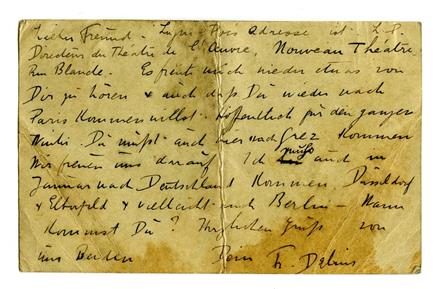 Lieber Freund – Lugné-Poes Adresse ist – L.P.
Directeur du Théâtre de l'Œuvre, Nouveau Théâtre
Rue Blanche. Es freut mich wieder etwas von
Dir zu hören & auch dass Du wieder nach
Paris kommen willst. Hoffentlich für den ganzen
Winter. Du musst auch hier nach Grez kommen
Wir freuen uns darauf. Ich muss auch im
Januar nach Deutschland kommen. Düsseldorf
& Elberfeld & vielleicht auch Berlin – Wann
kommst Du? Herzlichen Gruss von
uns Beiden Dein Fr. Delius